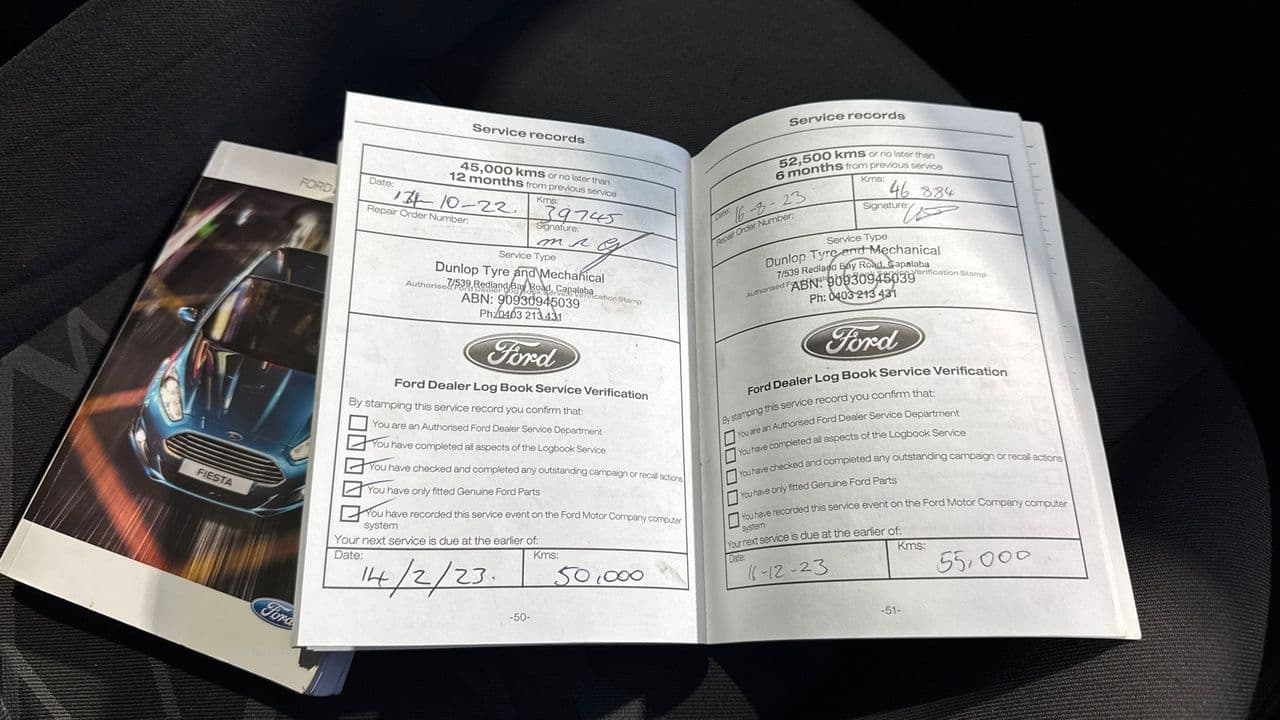 FORD
FIESTA
Ford
Service records
45,000 kms or no later than
12 months from previous service
Date: 14-10-22. Kms: 39745
Repair Order Number: Signature:
Service Type
Dunlop Tyre and Mechanical
7/539 Redland Bay Road, Capalaba
Authorised Ford Dealer Log Book Service Verification Stamp
ABN: 90930945039
Ph: 0403 213 431
Ford
Ford Dealer Log Book Service Verification
By stamping this service record you confirm that:
You are an Authorised Ford Dealer Service Department
You have completed all aspects of the Logbook Service
You have checked and completed any outstanding campaign or recall actions
You have only fitted Genuine Ford Parts
You have recorded this service event on the Ford Motor Company computer
system
Your next service is due at the earlier of:
Date: Kms:
14/2/23. 50,000
-50-
Service records
52,500 kms or no later than
6 months from previous service
Date: 16-8-23 Kms: 46 884
Repair Order Number: Signature:
Service Type
Dunlop Tyre and Mechanical
7/539 Redland Bay Road, Capalaba
Authorised Service Verification Stamp
ABN: 90930945039
Ph: 0403 213 431
Ford
Ford Dealer Log Book Service Verification
By stamping this service record you confirm that:
You are an Authorised Ford Dealer Service Department
You have completed all aspects of the Logbook Service
You have checked and completed any outstanding campaign or recall actions
You have only fitted Genuine Ford Parts
You have recorded this service event on the Ford Motor Company computer
system
Your next service is due at the earlier of:
Date: Kms:
-12-23 55,000
-51-